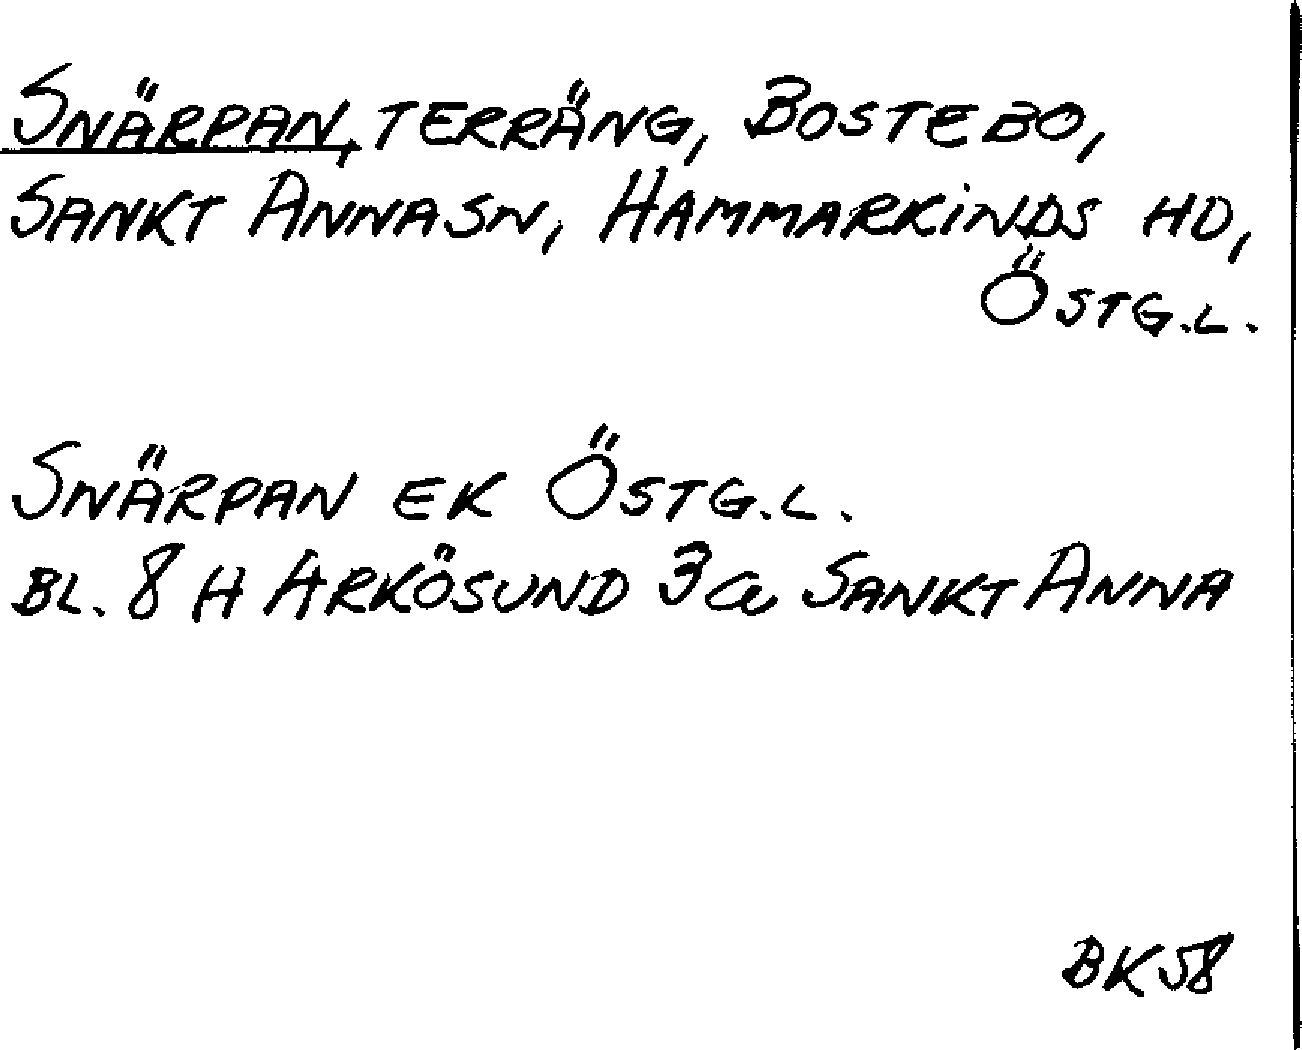 Snärpan, terräng, Bostebo,
Sankt Annasn, Hammarkinds hd,
Östg.l.
Snärpan ek Östg.l.
bl. 8 H Arkösund 3 a Sankt Anna
BK58